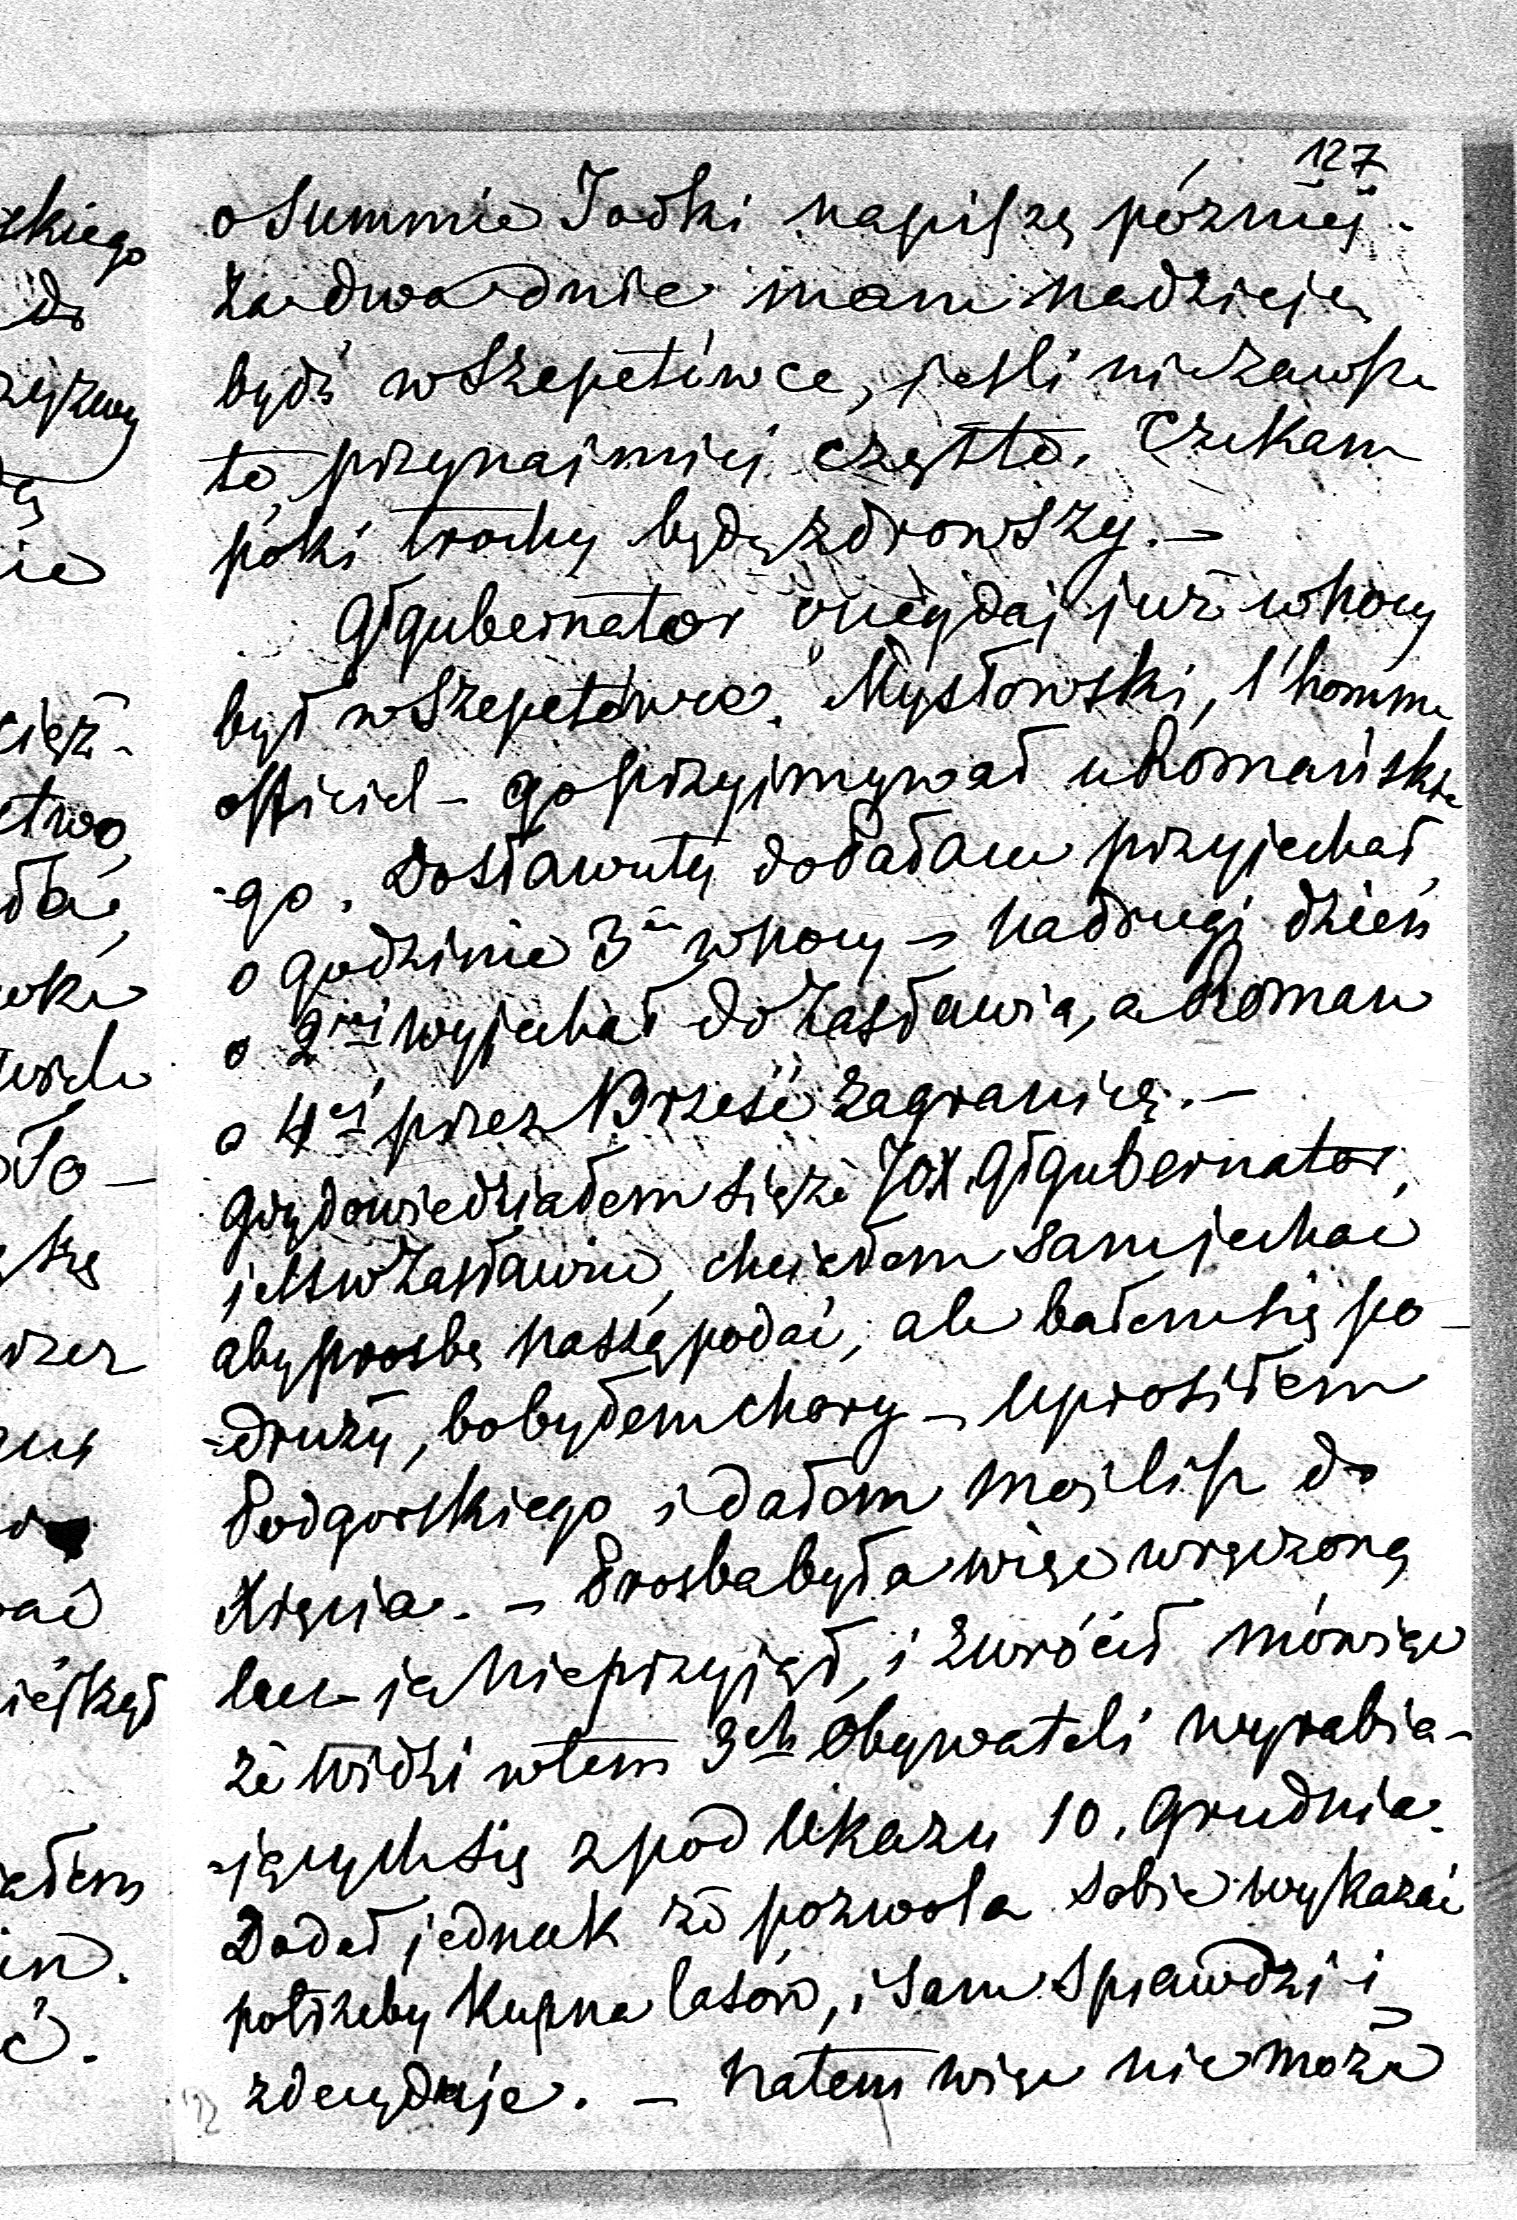 127
o Summie Jaski napiszę pózniej.
za dwa dnie mam nadzieję
bydź w Szepetówce, jesli nie zawsze
to przynajmniej często. Czekam
póki trochę będę zdrowszy. —
Głgubernator onegdaj już w nocy
był w Szepetówce. Mysłowski, l'homme
officiel – go przyjmywał u Romańskie
-go. Do Sławuty dodałam przyjechał
o godzinie 3ei w nocy – na drugi dzień
o 2iej wyjechał do Zasławia, a Roman
o 4ej przez Brześć zagranicę. —
Gdy dowiedziałem się że JOX. Głgubernator,
jest w Zasławiu, chciałem sam jechać
aby prosbę naszą podać, ale bałem się po-
-drużÿ, bo byłem chory – Uprosiłem
Podgorskiego i dałem mój list do
Xięcia. – Prosba była więc wręczoną
lecz ją nieprzyjął, i zwrócił mówiąc
że widzi w tem 3ch Obywateli wyrabia-
-jących się z pod Ukazu 10. Grudnia.
Dodał jednak że pozwola sobie wykazać
potrzeby kupna lasów, i sam sprawdzi i
zdecyduje. — Na tem więc nie może